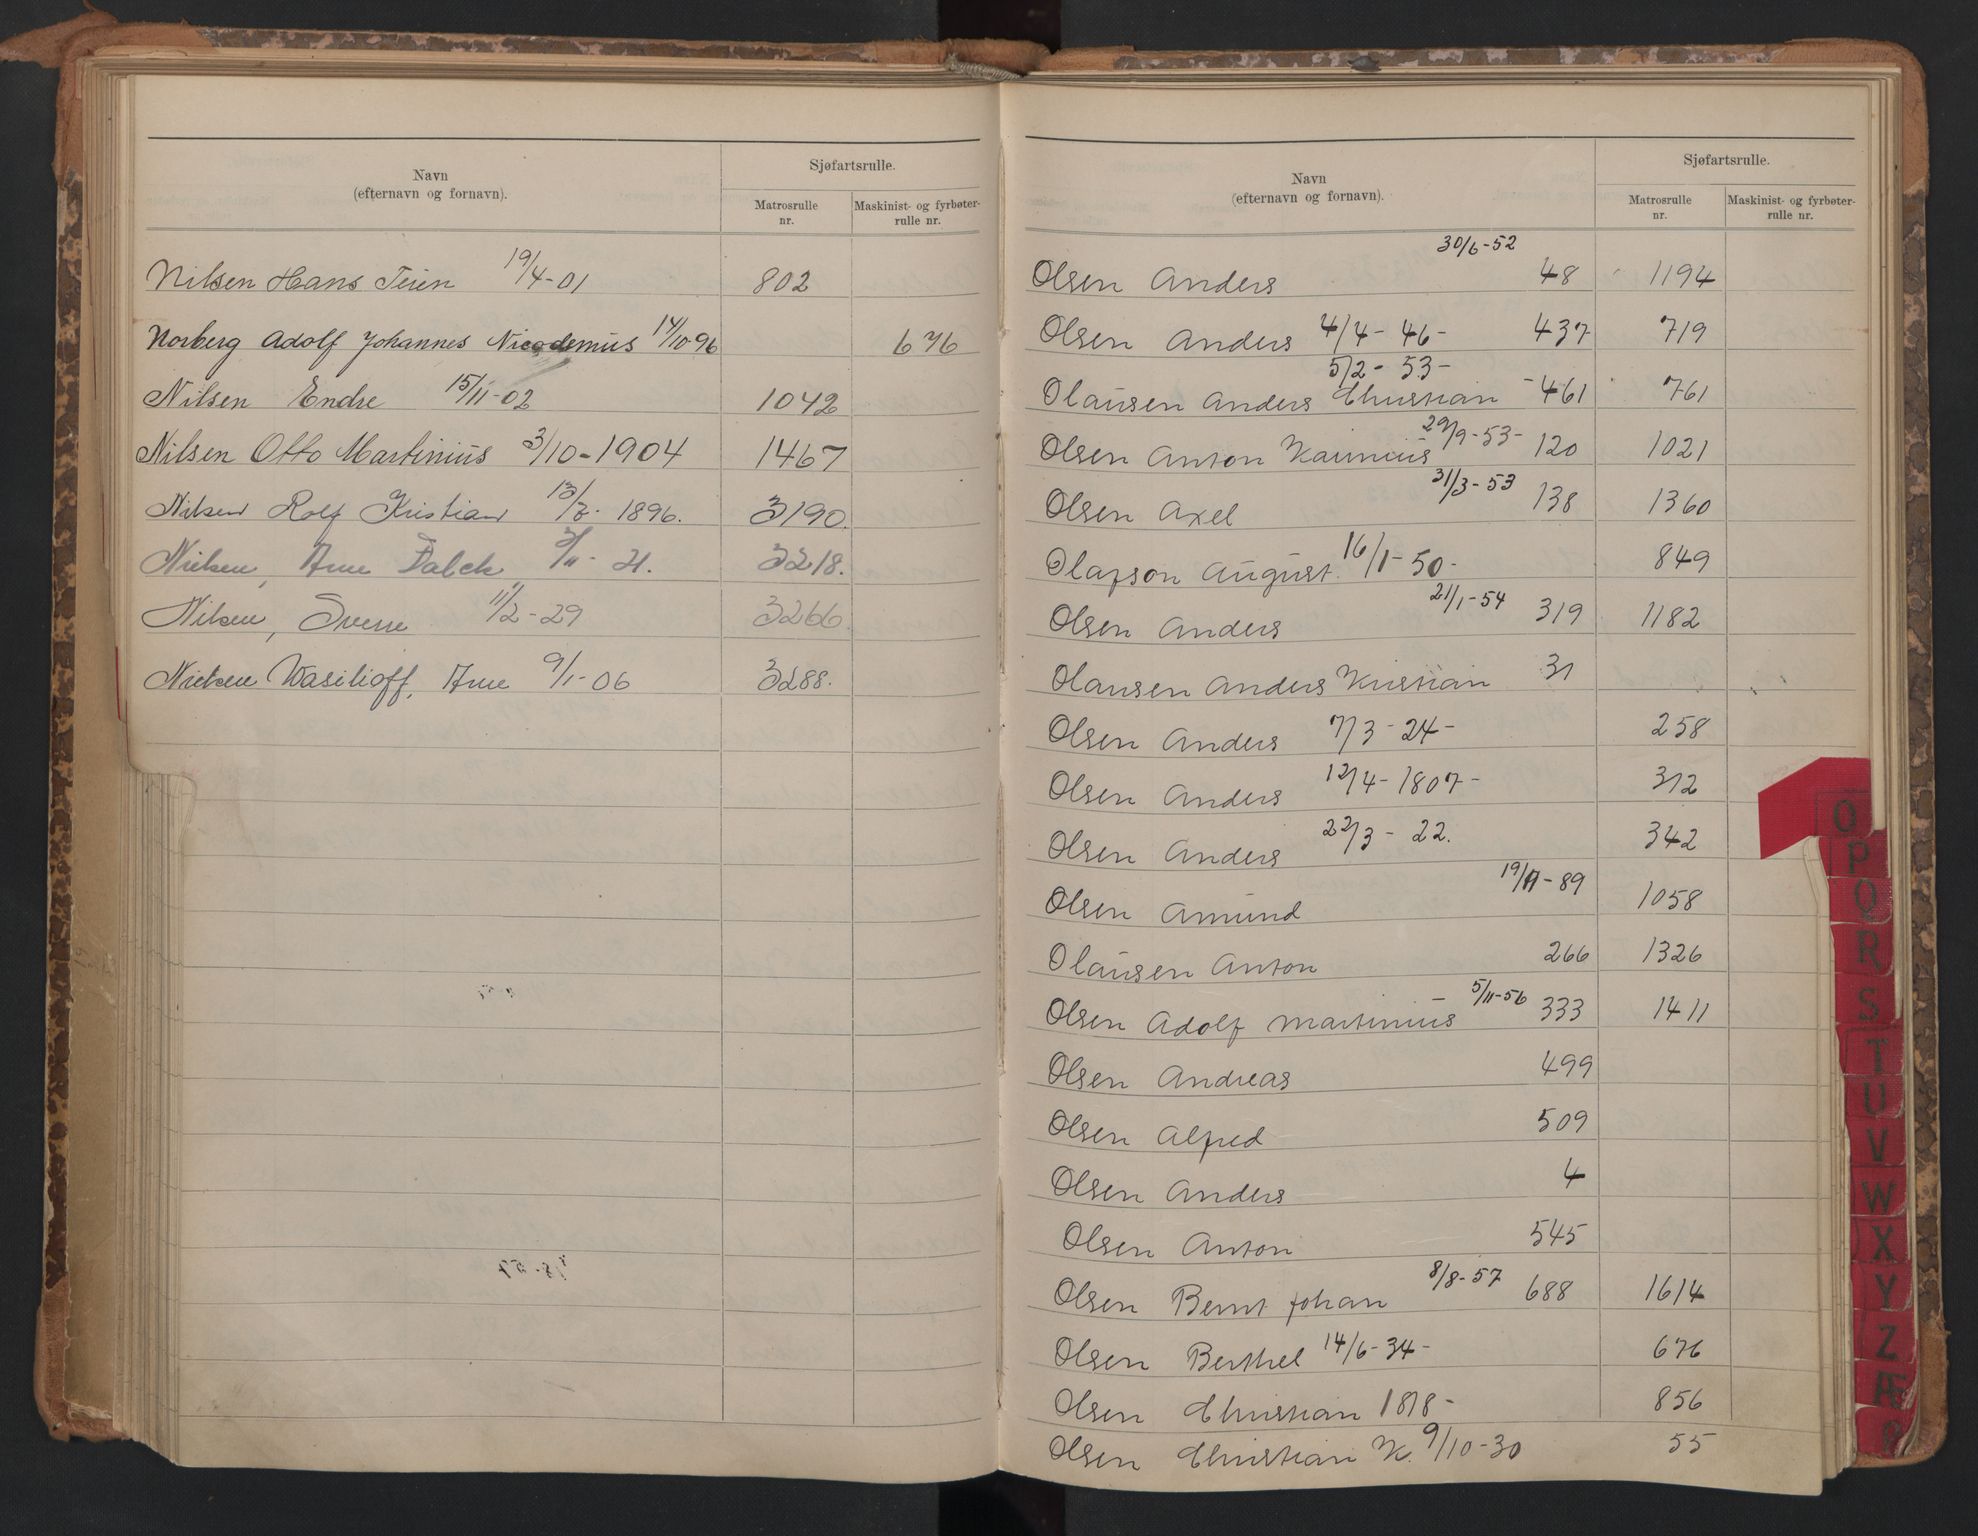 Navn
(efternavn og fornavn).
Sjøfartsrulle.
Matrosrulle
nr.
Maskinist- og fyrbøter-
rulle nr.
Nilsen Hans Teien 19/4-01 802
Norberg Adolf Johannes Nicodemus 14/10 96 676
Nilsen Endre 15/11-02 1042
Nilsen Otto Martinius 3/10-1904 1467
Nilsen Rolf Kristian 1896. 3190.
Nielsen, Arne Falck 21. 3218.
Nilsen, Sverre 11/2-29 3266
Nielsen Wasilioff, Arne 9/1-06 3288.
Navn
(efternavn og fornavn).
Sjøfartsrulle.
Matrosrulle
nr.
Maskinist- og fyrbøter-
rulle nr.
30/6-52
Olsen Anders 48 1194
Olsen Anders 4/4-46- 437 719
5/2-53-
Olausen Anders Christian -461 761
29/9-53-
Olsen Anton 120 1021
31/3-53
Olsen Axel 138 1360
Olafson August 16/1-50- 849
21/1-54
Olsen Anders 319 1182
Olausen Anders Kristian 31
Olsen Anders 7/3-24- 258
Olsen Anders 12/4-1807- 312
Olsen Anders 22/3-22. 342
19/11-89
Olsen Amund 1058
Olausen Anton 266 1326
5/11-56
Olsen Adolf Martinius 333 1411
Olsen Andreas 499
Olsen Alfred 509
Olsen Anders 4
Olsen Anton 545
8/8-57
Olsen Bernt Johan 688 1614
Olsen Berthel 14/6-34- 676
Olsen Christian 1818- 856
Olsen Christian K. 9/10-30 55
O
P
Q
R
S
T
U
V
W
X
Y
Z
Æ